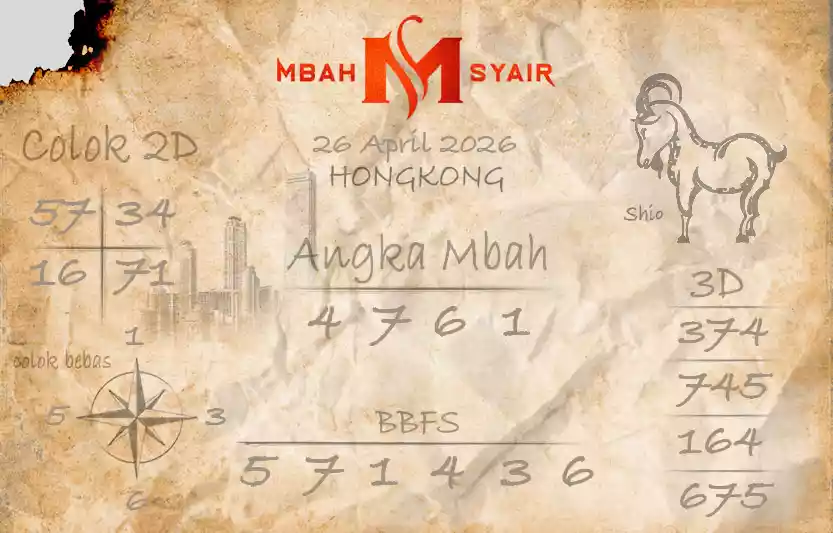 MBAH M SYAIR
26 April 2026
HONGKONG
Colok 2D
57 34
16 71
Shio
Angka Mbah
4 7 6 1
3D
374
745
164
675
colok bebas
1
5 3
6
BBFS
5 7 1 4 3 6